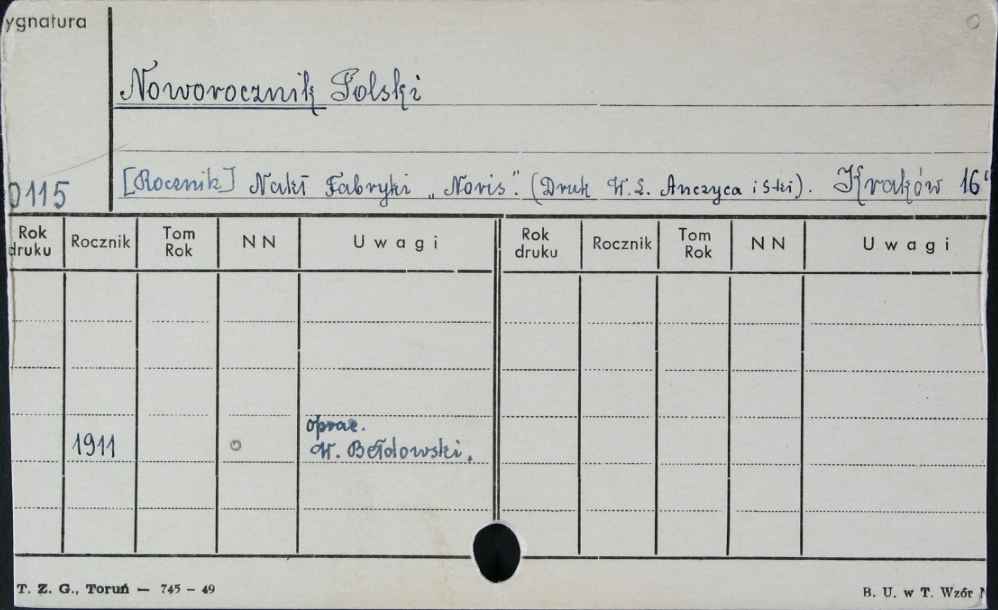 ygnatura
Noworocznik Polski
0115
[Rocznik] Nakł Fabryki „Noris". (Druk W. L. Anczyca i Ski). Kraków 16°
Rok druku Rocznik Tom Rok NN Uwagi Rok druku Rocznik Tom Rok NN Uwagi
oprac.
1911 W. Bełdowski.
T. Z. G., Toruń — 745 – 49
B. U. w T. Wzór